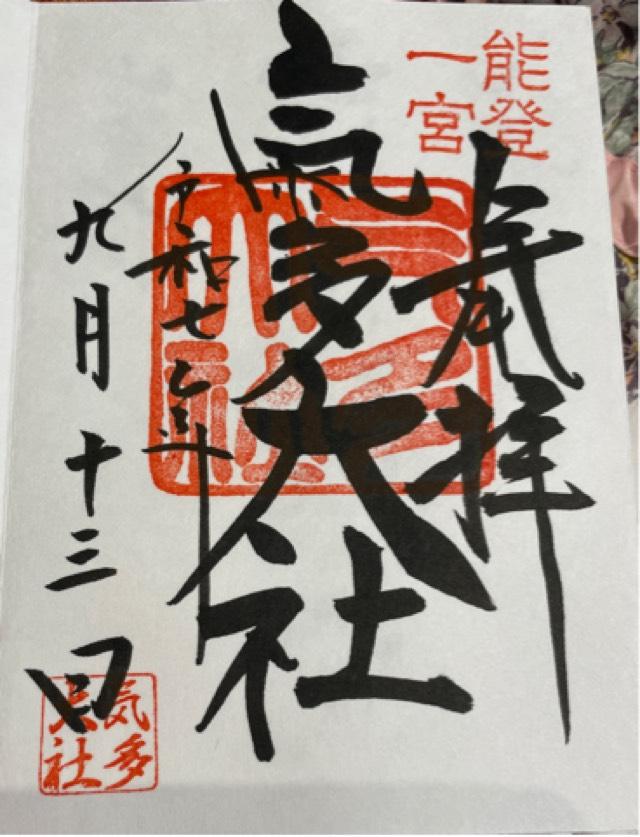 能登
一宮
奉拝
氣多大社
氣多
大社
令和七年
九月十三日
気多
大社